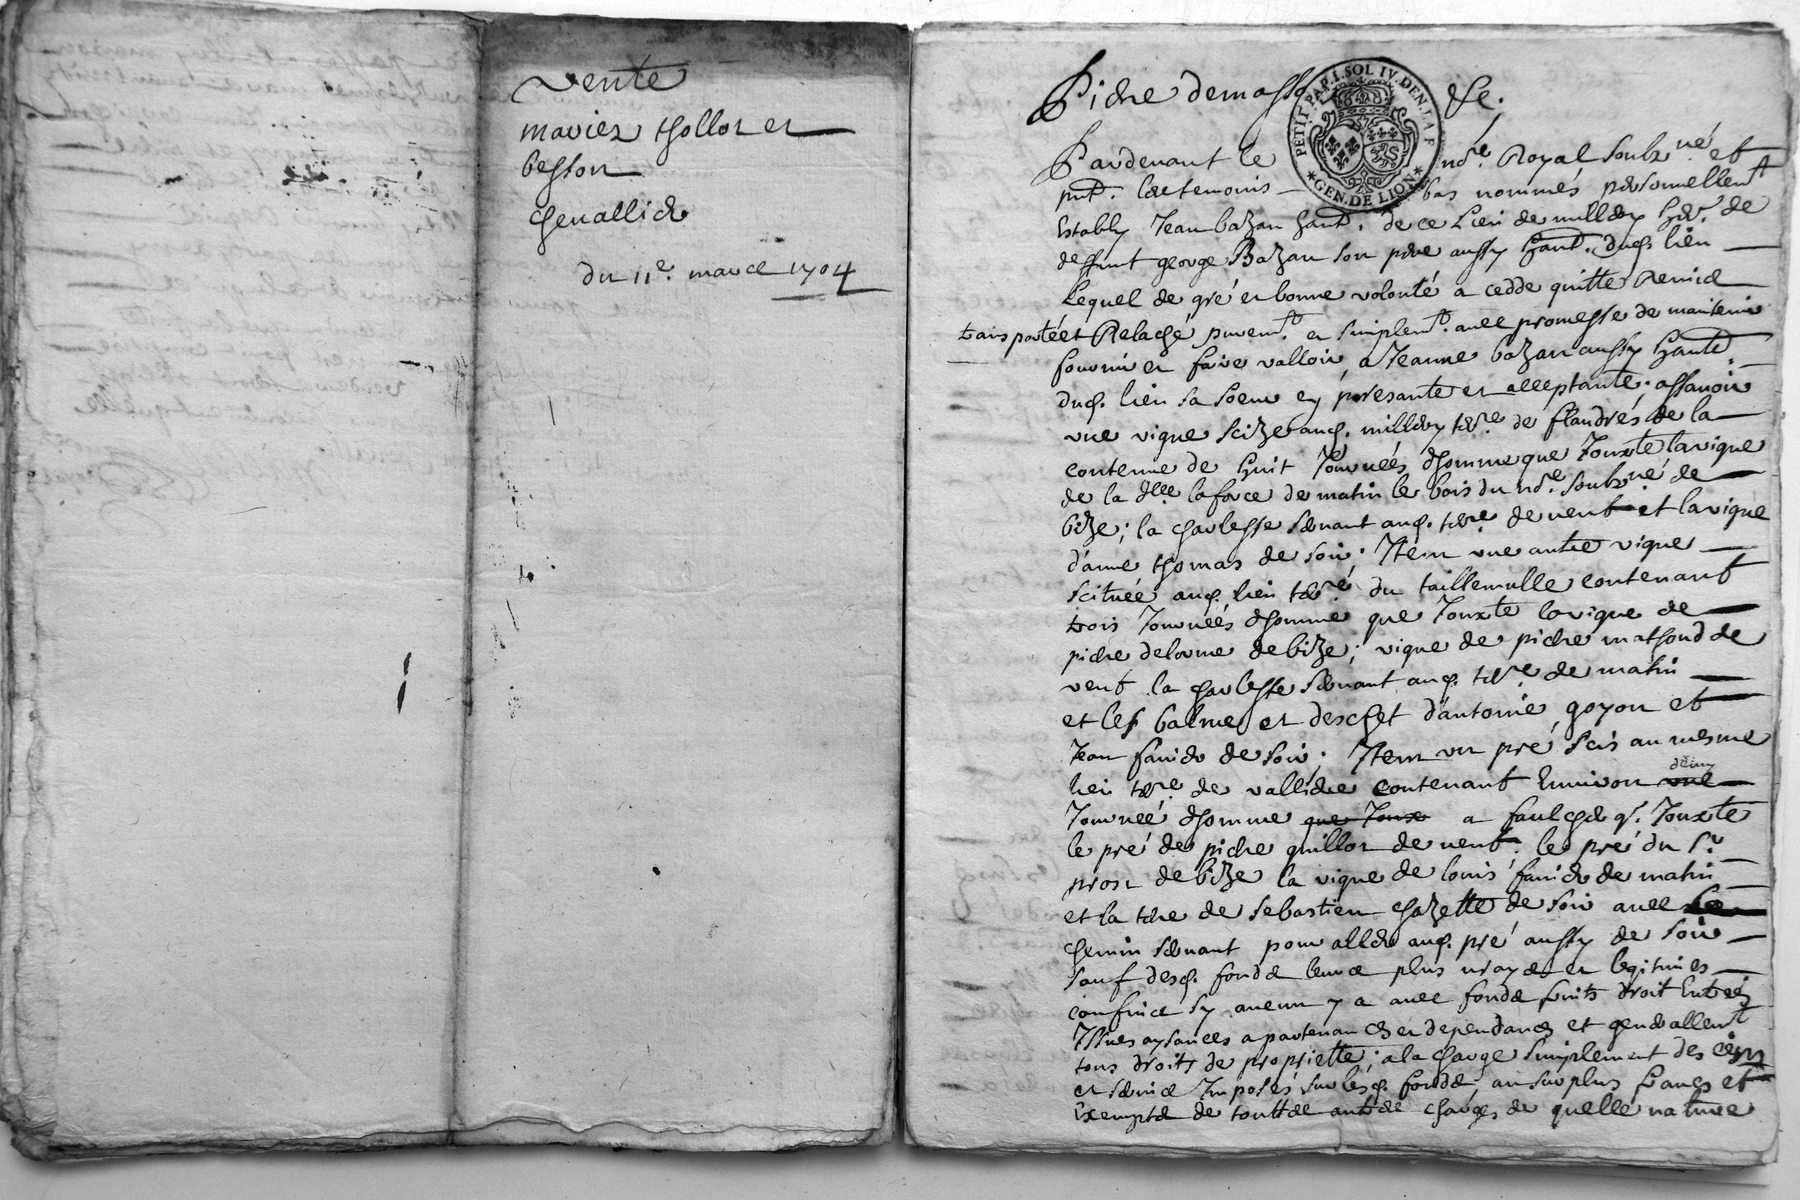 vente
maviez thollot et
besson
chevallier
du 11e. marce 1704
Pierre demasso &c.
PETIT PAP. 1. SOL IV. DEN. LA F
GEN. DE LION
Pardevant le nore. Royal soubzné. et
pnt. les temoins bas nommés personnellemt
Estably Jean bazan hant. de ce lieu de millery her. de
deffunt george Bazan son pere aussy hant. dud. lieu
Lequel de gré et bonne volonté a cedde quitte Remise
transporté et Relaché purement. et simplemt. avec promesse de maintenir
fournir et faire valloir, a Jeanne bazan aussy hante.
dud. lieu sa soeur ey presante et acceptante; assavoir
une vigne scize aud. millery terre. de flandres de la
contenue de huit Journeés dhomme que Jouxte la vigne
de la dlle laforce de matin le bois du nore. soubzné. de
bize; la charlesse servant aud. terre. de vent et la vigne
d'anne thomas de soir; Item une autre vigne
scituée aud. lieu terre. du taillemulle contenant
trois Journeés dhomme que Jouxte la vigne de
pierre delorme de bize; vigne de pierre mathond de
vent la charlesse servant aud. terre. de matin
et les balme et deschet d'antoine goyon et
Jean favier de soir; Item un pré scis au mesme
lieu terre. de vallière contenant Environ une demy
Journeé dhomme que Joux a faulcher q. Jouxte
le pré de pierre guillot de vent; le pré du sr.
prost de bize la vigne de louis favier de matin
et la terre de sebastien chazette de soir avec
chemin servant pour aller aud. pré aussy de soir
sauf desd. fonds leurs plus vrayes et legitimes
confins sy aucun y a avec fonds fruits droit Entrée
Issues aysances apartenances et dependances et generallemt
tous droits de proprietté; a la charge simplement des cens
et servis Imposés sur lesd. fonds, au surplus francs et
Exempts de touttes autres charges de quelle nature